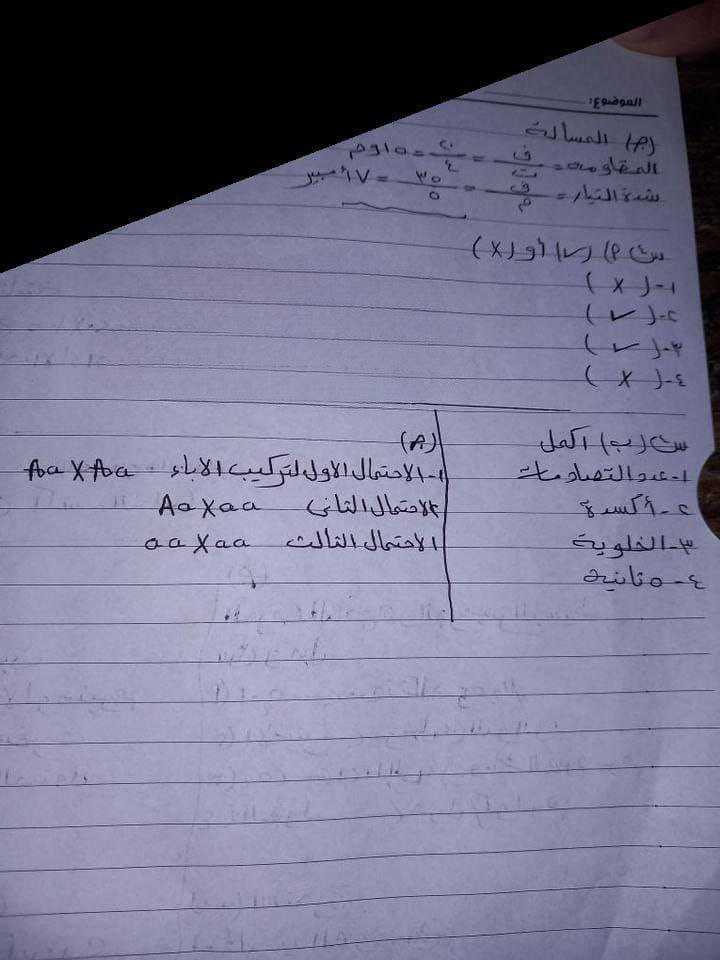 الموضوع:
(جـ) المسألة
المقاومة = ف/ت = ٢٠/٤ = ٥ اوم
شدة التيار = ف/م = ٣٥/٥ = ٧ أمبير
س٤ (أ) (✓) أو (X)
١- ( X )
٢- ( ✓ )
٣- ( ✓ )
٤- ( X )
س٤ (ب) اكمل
١- عدد التصادمات
٢- أكسدة
٣- الخلوية
٤- ٥ ثانيه
(جـ)
١- الاحتمال الاول لتركيب الاباء Aa X Aa
الاحتمال الثانى Aa X aa
الاحتمال الثالث aa X aa